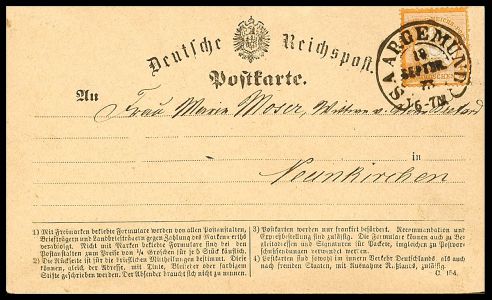 Deutsche Reichspost.
SAARGEMUND
18
SEPTBR.
6-7N
Postkarte.
An
Frau Marie Moser, Wittwe v.
in
Neunkirchen
1) Mit Freimarken beklebte Formulare werden von allen Postanstalten,
Briefträgern und Landbriefträgern gegen Zahlung des Markenwerths
verabfolgt. Nicht mit Marken beklebte Formulare sind bei den
Postanstalten zum Preise von ¼ Groschen für je 5 Stück käuflich.
2) Die Rückseite ist für die brieflichen Mittheilungen bestimmt. Diese
können, gleich der Adresse, mit Tinte, Bleifeder oder farbigen
Stifte geschrieben werden. Der Absender braucht sich nicht zu nennen.
3) Postkarten werden nur frankirt befördert. Recommandation und
Expreßbestellung sind zulässig. Die Formulare können auch zu Be-
gleitadressen und Signaturen für Packete, imgleichen zu Postvor-
schußsendungen verwendet werden.
4) Postkarten sind sowohl im innern Verkehr Deutschlands als auch
nach fremden Staaten, mit Ausnahme Rußlands, zulässig.
C. 154.